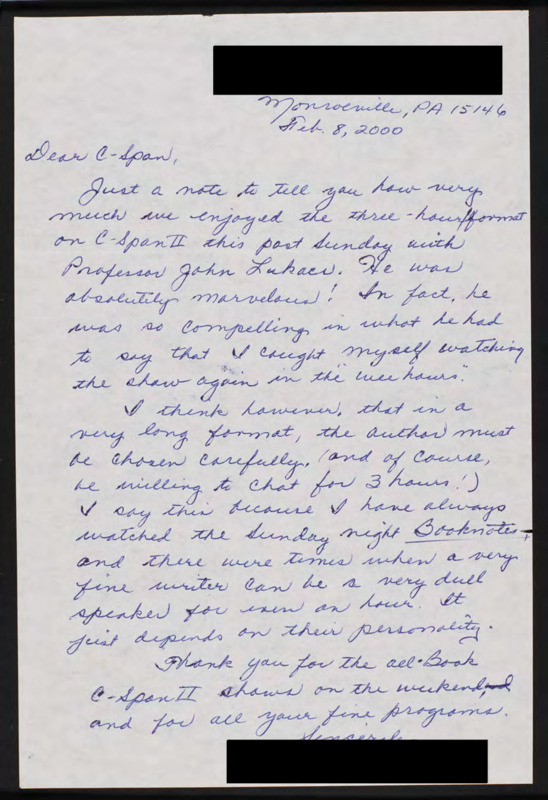 Monroeville, PA 15146
Feb. 8, 2000
Dear C-Span,
Just a note to tell you how very
much we enjoyed the three-hour format
on C-Span II this past Sunday with
Professor John Lukacs. He was
absolutely marvelous! In fact, he
was so compelling in what he had
to say that I caught myself watching
the show again in the "wee hours".
I think however, that in a
very long format, the author must
be chosen carefully. (and of course,
be willing to chat for 3 hours!)
I say this because I have always
watched the Sunday night Booknotes,
and there were times when a very
fine writer can be a very dull
speaker for even an hour. It
just depends on their personality.
Thank you for the all-Book
C-Span II shows on the weekend,
and for all your fine programs.
Sincerely